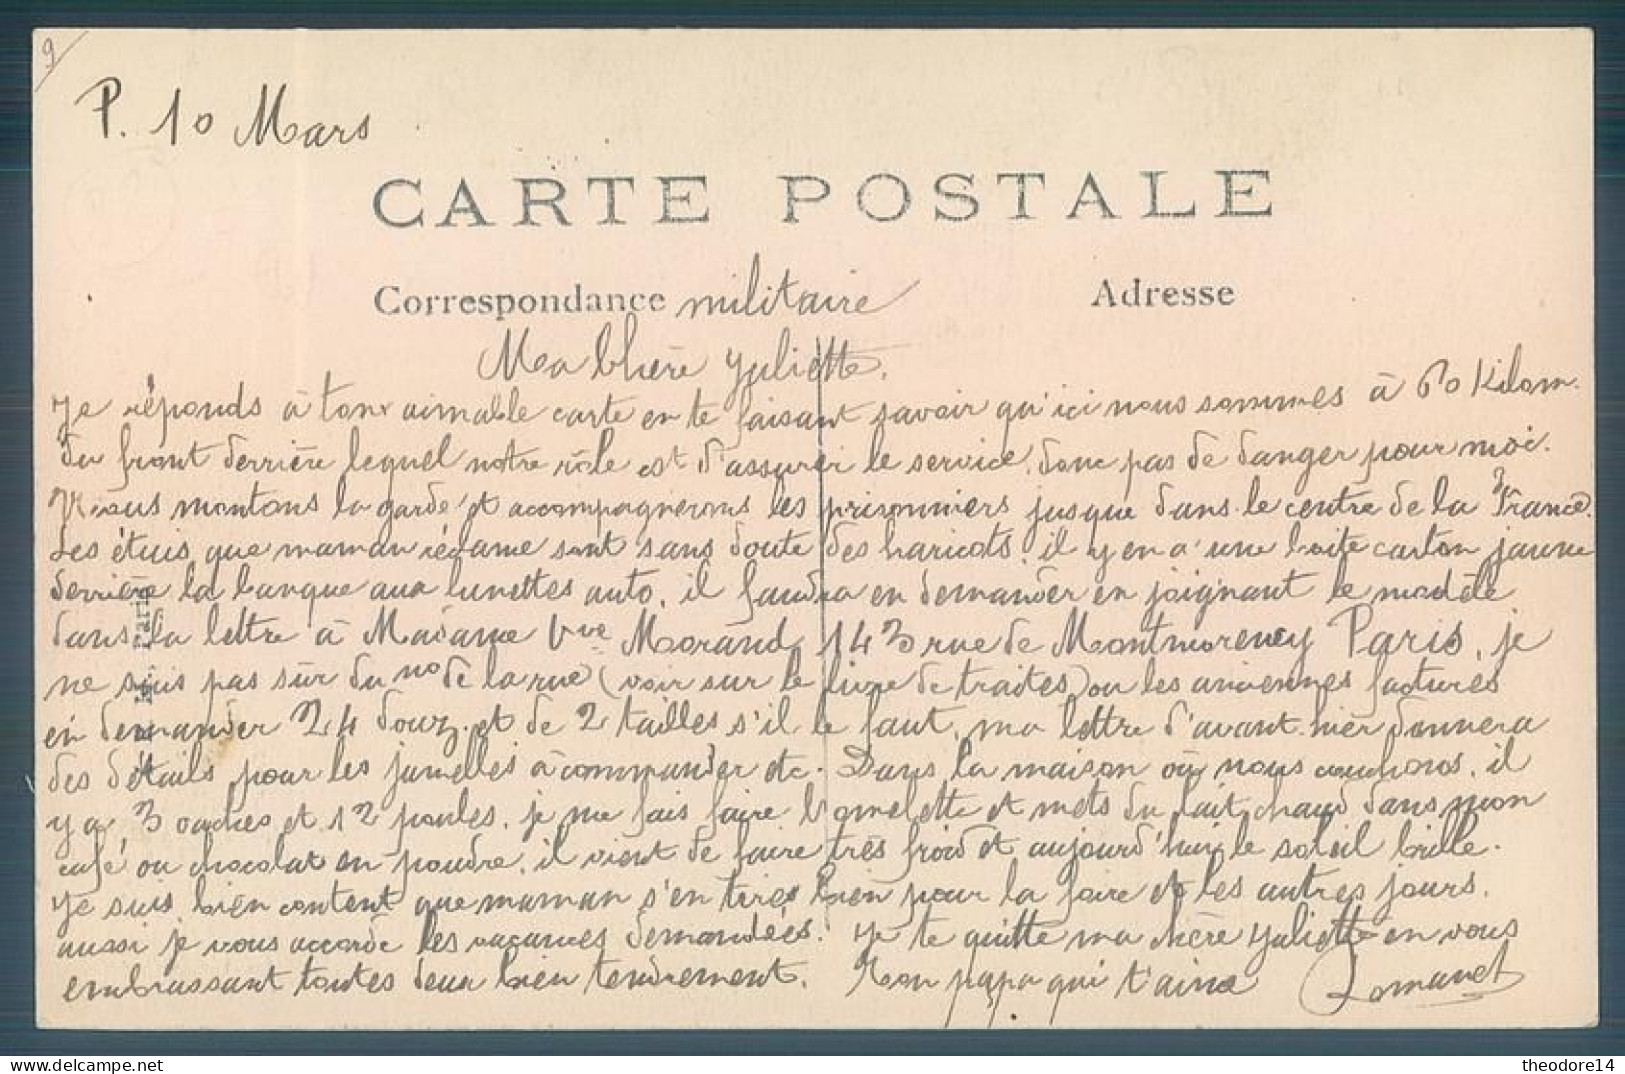 9
P. 10 Mars
CARTE POSTALE
Correspondance militaire Adresse
Ma Chère Juliette.
Je réponds à ton aimable carte en te faisant savoir qu'ici nous sommes à 60 Kilom.
du front derrière lequel notre rôle est d'assurer le service, donc pas de danger pour moi.
Nous montons la garde et accompagnerons les prisonniers jusque dans le centre de la France.
Les étuis que maman réclame sont sans doute des haricots, il y en a une boite carton jaune
derrière la banque aux lunettes auto, il faudra en demander en joignant le modèle
dans la lettre à Madame Vve Morand, 143 rue de Montmorency Paris, je
ne suis pas sûr du no de la rue (voir sur le livre de traites) ou les anciennes factures
en demander 24 douz. et de 2 tailles s'il le faut, ma lettre d'avant hier donnera
des détails pour les jumelles à commander etc. Dans la maison où nous couchons, il
y a 3 vaches et 12 poules, je me fais faire l'omelette et mets du lait chaud dans mon
café ou chocolat en poudre, il vient de faire très froid et aujourd'hui le soleil brille.
Je suis bien content que maman s'en tires bien pour la foire et les autres jours.
aussi je vous accorde les vacances demandées. Je te quitte ma chère Juliette en vous
embrassant toutes deux bien tendrement. Ton papa qui t'aime
Paris
theodore14